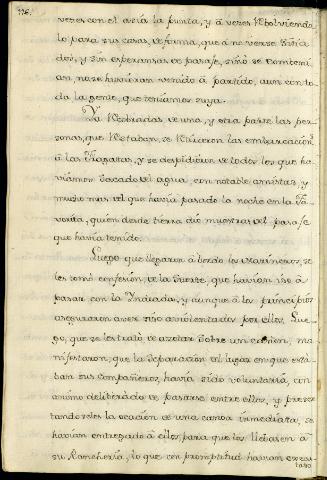 176.
veces con el asta la punta, y â veces rebolviendo
lo para sus casas, de forma, que â no verse sitia
dos, y sin esperansas de pasaje, sino se convenian
an no se hubieran venido â partido, aun con to
da la gente, que teniamos suya.
Ya recobradas de una, y otra parte las per
sonas, que restaban, se retiraron las embarcacion.s
â las Fragatas, y se despidieron de todos los que ha
viamos sacado del agua con notable amistad, y
mucho mas del que havia pasado la noche en la Fa
vorita, quien desde tierra dio muestras del pasaje
que havia tenido.
Luego que llegaron â bordo los Marineros, se
les tomó confesion, de la suerte, que havian ido â
parar con la Indiada, y aunque â los principios
aseguraron aver sido violentados por ellos, Lue
go, que se les trató de azotar sobre un cañon, ma
nifestaron, que la separacion del lugar en que esta
ban sus compañeros, havia sido voluntaria, con
animo deliberado de pasarse entre ellos, y presen
tandoseles la ocacion de una canoa inmediata, se
havian entregado â ellos, para que los llebasen â
su Rancheria, lo que con promptitud havian execu
tado